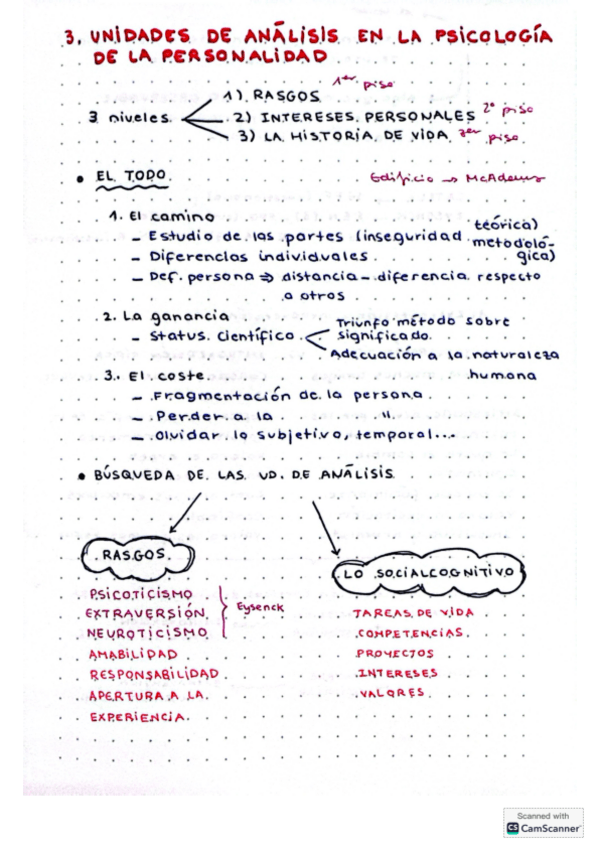 3. UNIDADES DE ANÁLISIS EN LA PSICOLOGÍA
DE LA PERSONALIDAD
3 niveles
1) RASGOS 1er piso
2) INTERESES PERSONALES 2º piso
3) LA HISTORIA DE VIDA 3er piso
• EL TODO
Edificio → McAdams
1. El camino
– Estudio de las partes (inseguridad teórica)
metodológica)
– Diferencias individuales
– Def. persona ⇒ distancia – diferencia respecto
a otros
2. La ganancia
– Status científico
Triunfo método sobre
significado
Adecuación a la naturaleza
humana
3. El coste
– Fragmentación de la persona
– Perder a la "
– Olvidar lo subjetivo, temporal...
• BÚSQUEDA DE LAS UD. DE ANÁLISIS
RASGOS
PSICOTICISMO
EXTRAVERSIÓN
NEUROTICISMO
Eysenck
AMABILIDAD
RESPONSABILIDAD
APERTURA A LA
EXPERIENCIA
LO SOCIALCOGNITIVO
TAREAS DE VIDA
COMPETENCIAS
PROYECTOS
INTERESES
VALORES
Scanned with
CS CamScanner